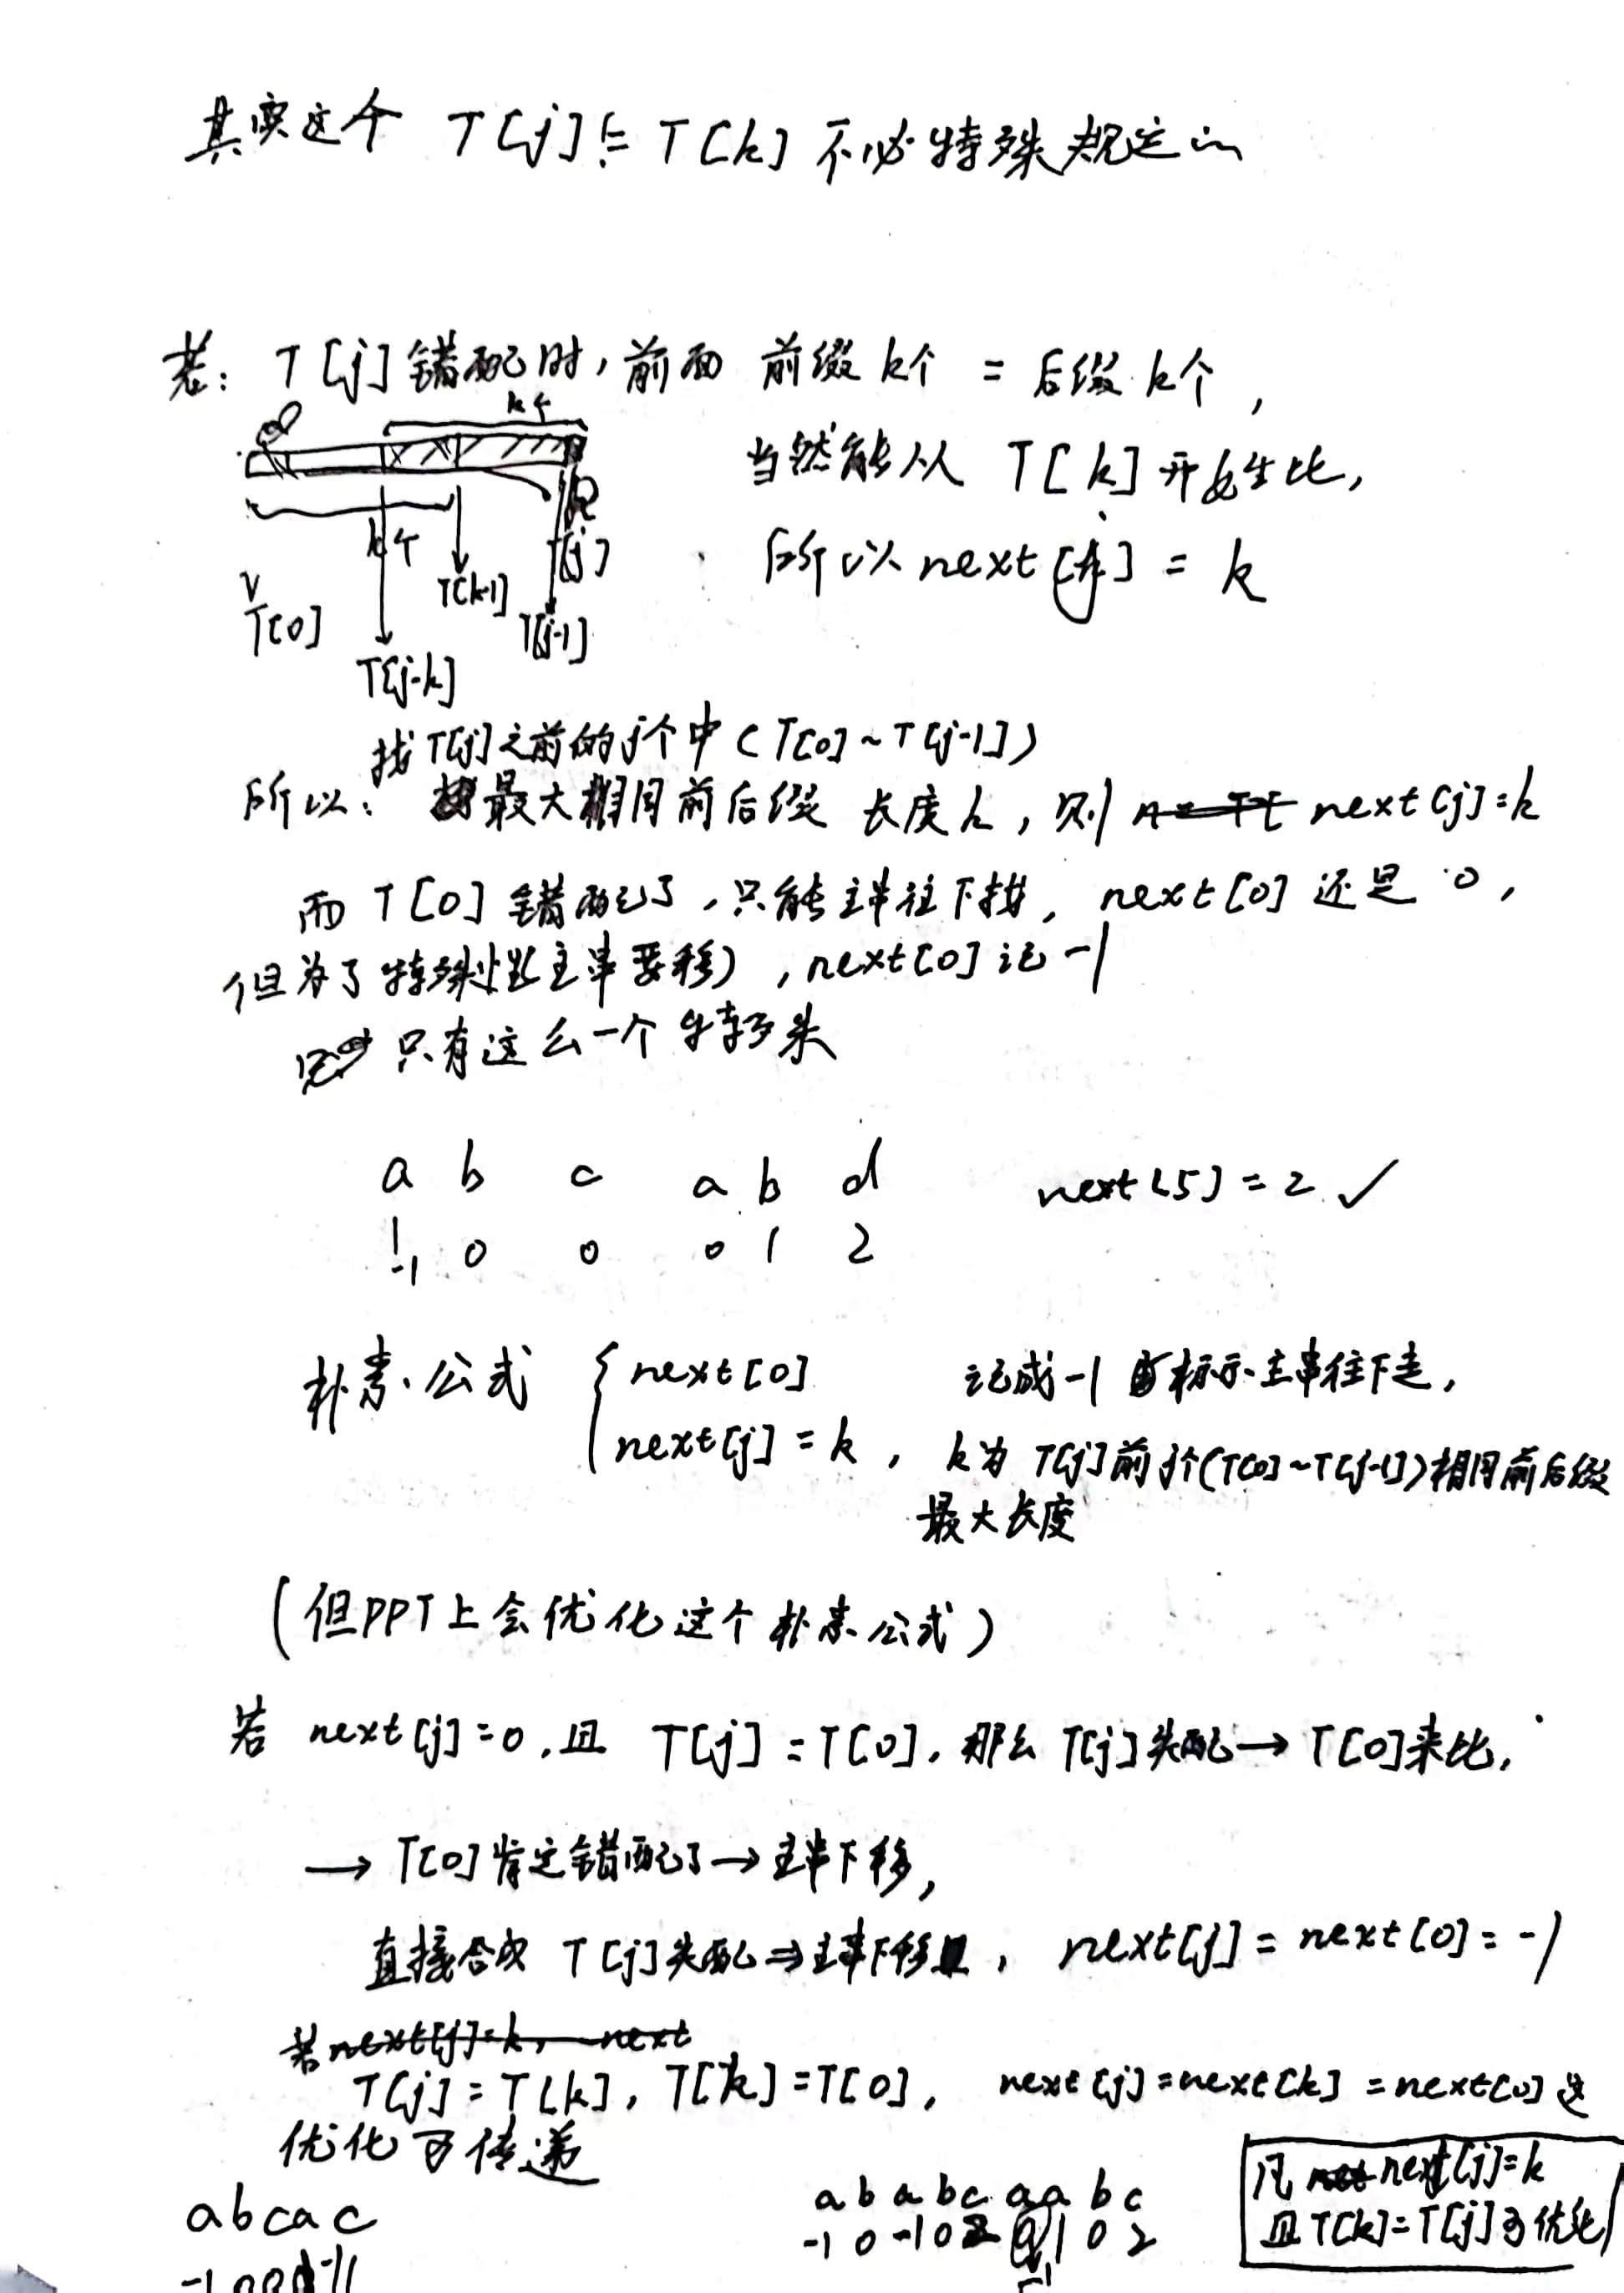 其实这个 T[j] != T[k] 不必特殊规定的
若: T[j]错配时, 前面 前缀k个 = 后缀k个,
k个
当然能从 T[k]开始比,
所以next[j] = k
k个
T[0]
T[k-1]
T[j]
T[j-1]
T[j-k]
找T[j]之前的j个中(T[0]~T[j-1])
所以: 最大相同前后缀 长度k, 则 next[j]=k
而 T[0] 错配了, 只能主串往下找, next[0] 还是 0,
但为了特殊 主串要移), next[0]记 -1
只有这么一个特殊
a b c a b d next[5]=2 ✓
-1 0 0 0 1 2
朴素公式 { next[0] 记成-1 标示主串往下走,
next[j] = k, k为 T[j]前j个(T[0]~T[j-1])相同前后缀
最大长度
(但PPT上会优化这个朴素公式)
若 next[j]=0, 且 T[j] = T[0], 那么 T[j]失配→ T[0]来比,
→ T[0]肯定错配了→主串下移,
直接合成 T[j]失配⇒主串下移, next[j] = next[0] = -1
若 next[j]=k, next
T[j] = T[k], T[k] = T[0], next[j]=next[k] =next[0] 这
优化可传递
凡 next[j]=k
且T[k]=T[j]可优化
a b a b c a a b c
-1 0 -1 0 2 -1 1 0 2
a b c a c